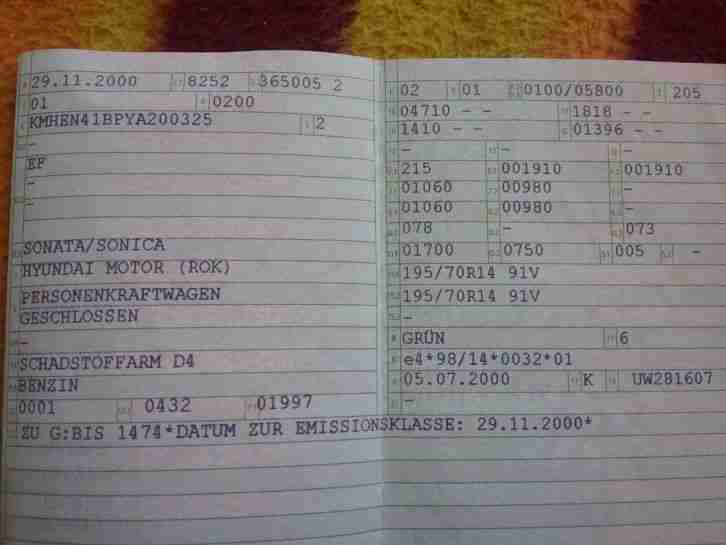 29.11.2000 8252 365005 2
01 0200
KMHEN41BPYA200325 2
-
EF
-
-
SONATA/SONICA
HYUNDAI MOTOR (ROK)
PERSONENKRAFTWAGEN
GESCHLOSSEN
-
SCHADSTOFFARM D4
BENZIN
0001 0432 01997
02 01 0100/05800 205
04710 - - 1818 - -
1410 - - 01396 - -
- - -
215 001910 001910
01060 00980 -
01060 00980 -
078 - 073
01700 0750 005 -
195/70R14 91V
195/70R14 91V
-
GRÜN 6
e4*98/14*0032*01
05.07.2000 K UW281607
-
ZU G:BIS 1474*DATUM ZUR EMISSIONSKLASSE: 29.11.2000*